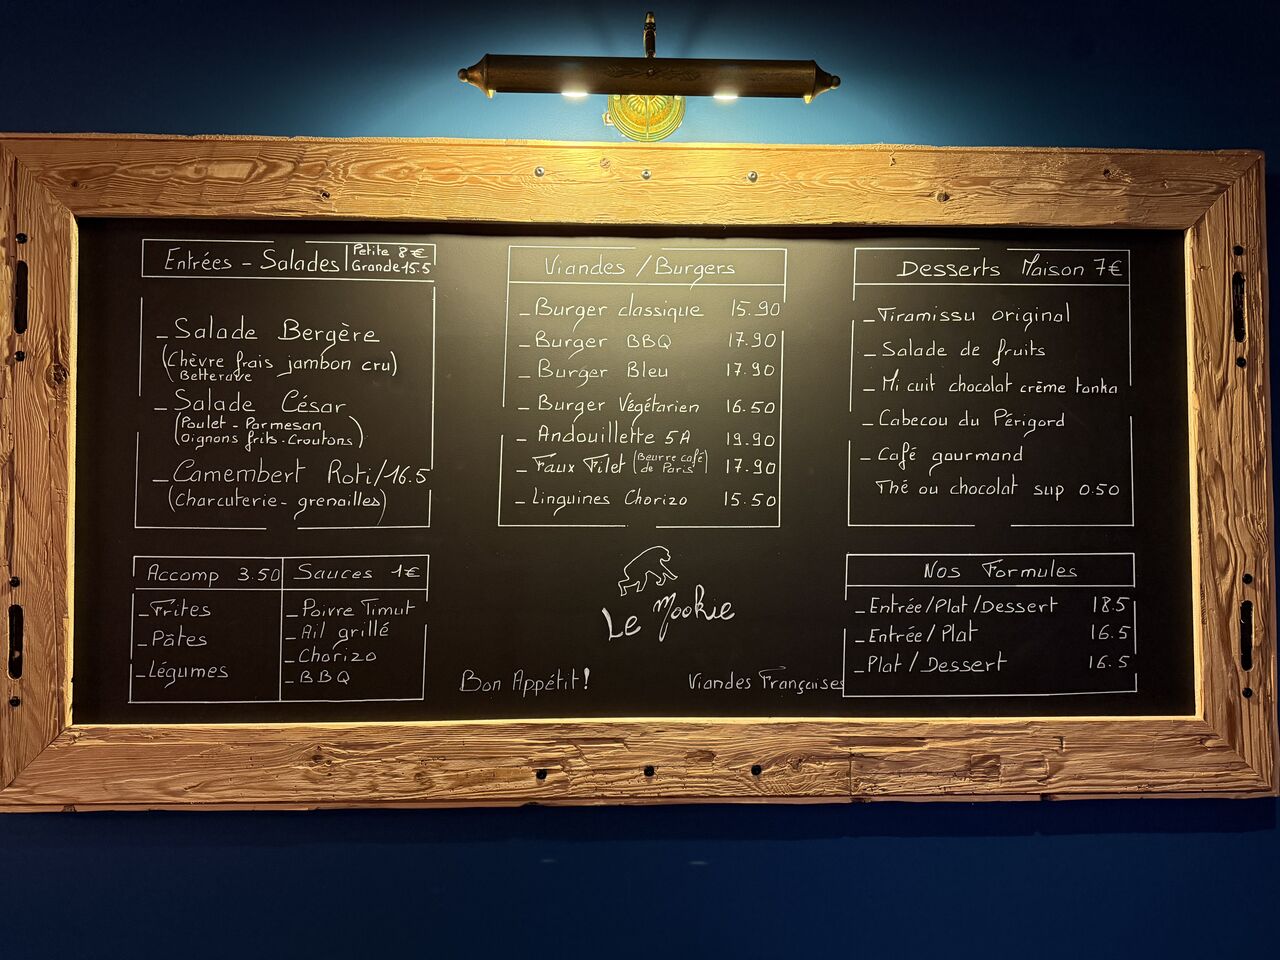 Entrées - Salades
Petite 8€
Grande 15.5
- Salade Bergère
(Chèvre frais jambon cru)
Betterave
- Salade César
(Poulet - Parmesan
oignons frits - Croutons)
- Camembert Roti/16.5
(Charcuterie - grenailles)
Viandes / Burgers
- Burger classique 15.90
- Burger BBQ 17.90
- Burger Bleu 17.90
- Burger Végétarien 16.50
- Andouillette 5A 19.90
- Faux Filet (Beurre café de Paris) 17.90
- Linguines Chorizo 15.50
Desserts Maison 7€
- Tiramissu original
- Salade de fruits
- Mi cuit chocolat crème tonka
- Cabecou du Périgord
- Café gourmand
Thé ou chocolat sup 0.50
Accomp 3.50
- Frites
- Pâtes
- Légumes
Sauces 1€
- Poivre Timut
- Ail grillé
- Chorizo
- BBQ
Le Mookie
Bon Appétit!
Viandes Françaises
Nos Formules
- Entrée/Plat/Dessert 18.5
- Entrée/Plat 16.5
- Plat/Dessert 16.5